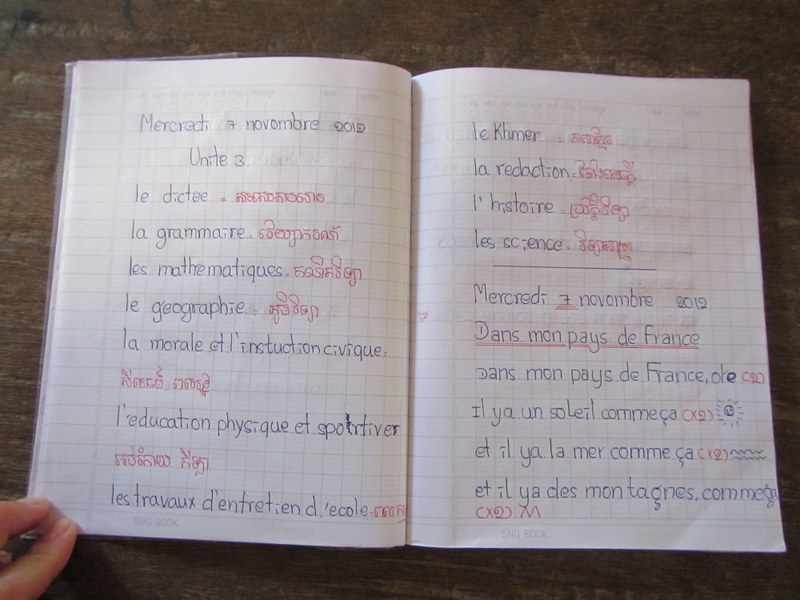 Mercredi 7 novembre 2012
Unite 3
le dictee = សរសេរតាមអាន
la grammaire. វេយ្យាករណ៍
les mathematiques. គណិតវិទ្យា
le geographie = ភូមិវិទ្យា
la morale et l'instuction civique.
សីលធម៌ ពលរដ្ឋ
l'education physique et sportiver
អប់រំកាយ កីឡា
les travaux d'entretien d.'ecole.
SNG BOOK
le Khmer = ភាសាខ្មែរ
la redaction. តែងសេចក្តី
l'histoire ប្រវត្តិវិទ្យា
les science. វិទ្យាសាស្ត្រ
Mercredi 7 novembre 2012
Dans mon pays de France
Dans mon pays de France, ole (x2)
Il ya un soleil comme ça (x2)
et il ya la mer comme ça (x2)
et il ya des montagnes, comme ça
(x2) M
SNG BOOK